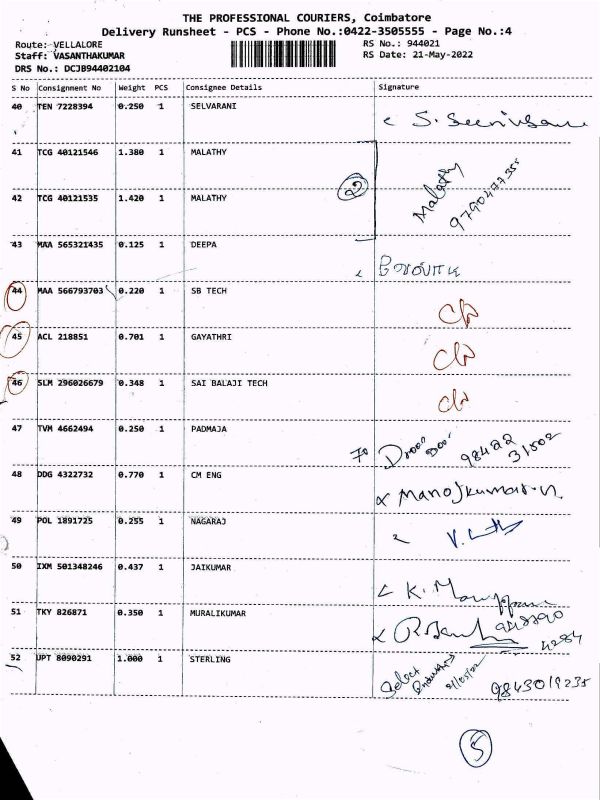 THE PROFESSIONAL COURIERS, Coimbatore
Delivery Runsheet - PCS - Phone No.:0422-3505555 - Page No.:4
Route: VELLALORE RS No.: 944021
Staff: VASANTHAKUMAR RS Date: 21-May-2022
DRS No.: DCJB94402104
S No Consignment No Weight PCS Consignee Details Signature
40 TEN 7228394 0.250 1 SELVARANI
41 TCG 40121546 1.380 1 MALATHY
2 Malathy
9790477355
42 TCG 40121535 1.420 1 MALATHY
43 MAA 565321435 0.125 1 DEEPA
44 MAA 566793703 0.220 1 SB TECH
45 ACL 218851 0.701 1 GAYATHRI
46 SLM 296026679 0.348 1 SAI BALAJI TECH
47 TVM 4662494 0.250 1 PADMAJA
98422
31502
48 DDG 4322732 0.770 1 CM ENG Manojkumar.n
49 POL 1891725 0.255 1 NAGARAJ
50 IXM 501348246 0.437 1 JAIKUMAR
51 TKY 826871 0.350 1 MURALIKUMAR
52 UPT 8090291 1.000 1 STERLING
9843019235
5